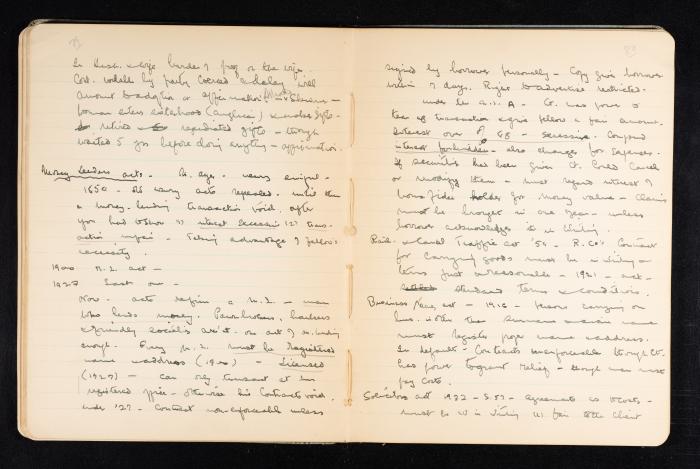 In Husb. & wife burden of proof on the wife.
Cont. voidable by party coerced & delay will
amount to adoption or affirmation. Allcard v Skinner –
woman enters sisterhood (Anglican) & makes gifts.
retired repudiated gifts – though
waited 5 yrs before doing anything – affirmation.
Money lenders acts. – M. ages. usury illegal.
1850 – old usury acts repealed. until then
a money-lending transaction void. after
you had to show (1) interest excessive (2) trans-
action unfair – Taking advantage of fellow's
necessity.
1900 M.L. act –
1927 last one –
Now. acts define a M.L. – man
who lends money. Pawnbrokers, bankers
& friendly societies aren't. one act of m. lending
enough. Every M.L. must be registered
name & address (1900) – Licensed
(1927) – can only transact at his
registered office – otherwise his contracts void.
under '27 – Contract non-enforceable unless
83
signed by borrower personally – Copy given borrower
within 7 days. Right to advertise restricted.
under M.L.A. – Ct. has power to
transaction & give fellow a fair amount.
Interest over 48 – excessive. Compound
interest forbidden – also charges for expenses.
If securities has been given Ct. could cancel
or modify them – must regard interest of
bona fide holder for money value – claims
must be brought in one year – unless
borrower acknowledges it in writing.
Rail. & Canal Traffic act '54 – R. Co's. Contract
for carrying goods must be in writing &
terms just & reasonable – 1921 – act –
standard terms & conditions.
Business Names act – 1916 – persons carrying on
bus. other than surname name
must register proper name & address.
In default – Contracts unenforceable though Ct.
has power to grant relief – though man must
pay costs.
Solicitors act 1932 – S.57 – agreements as to costs –
must be in writing (1) fair to the client